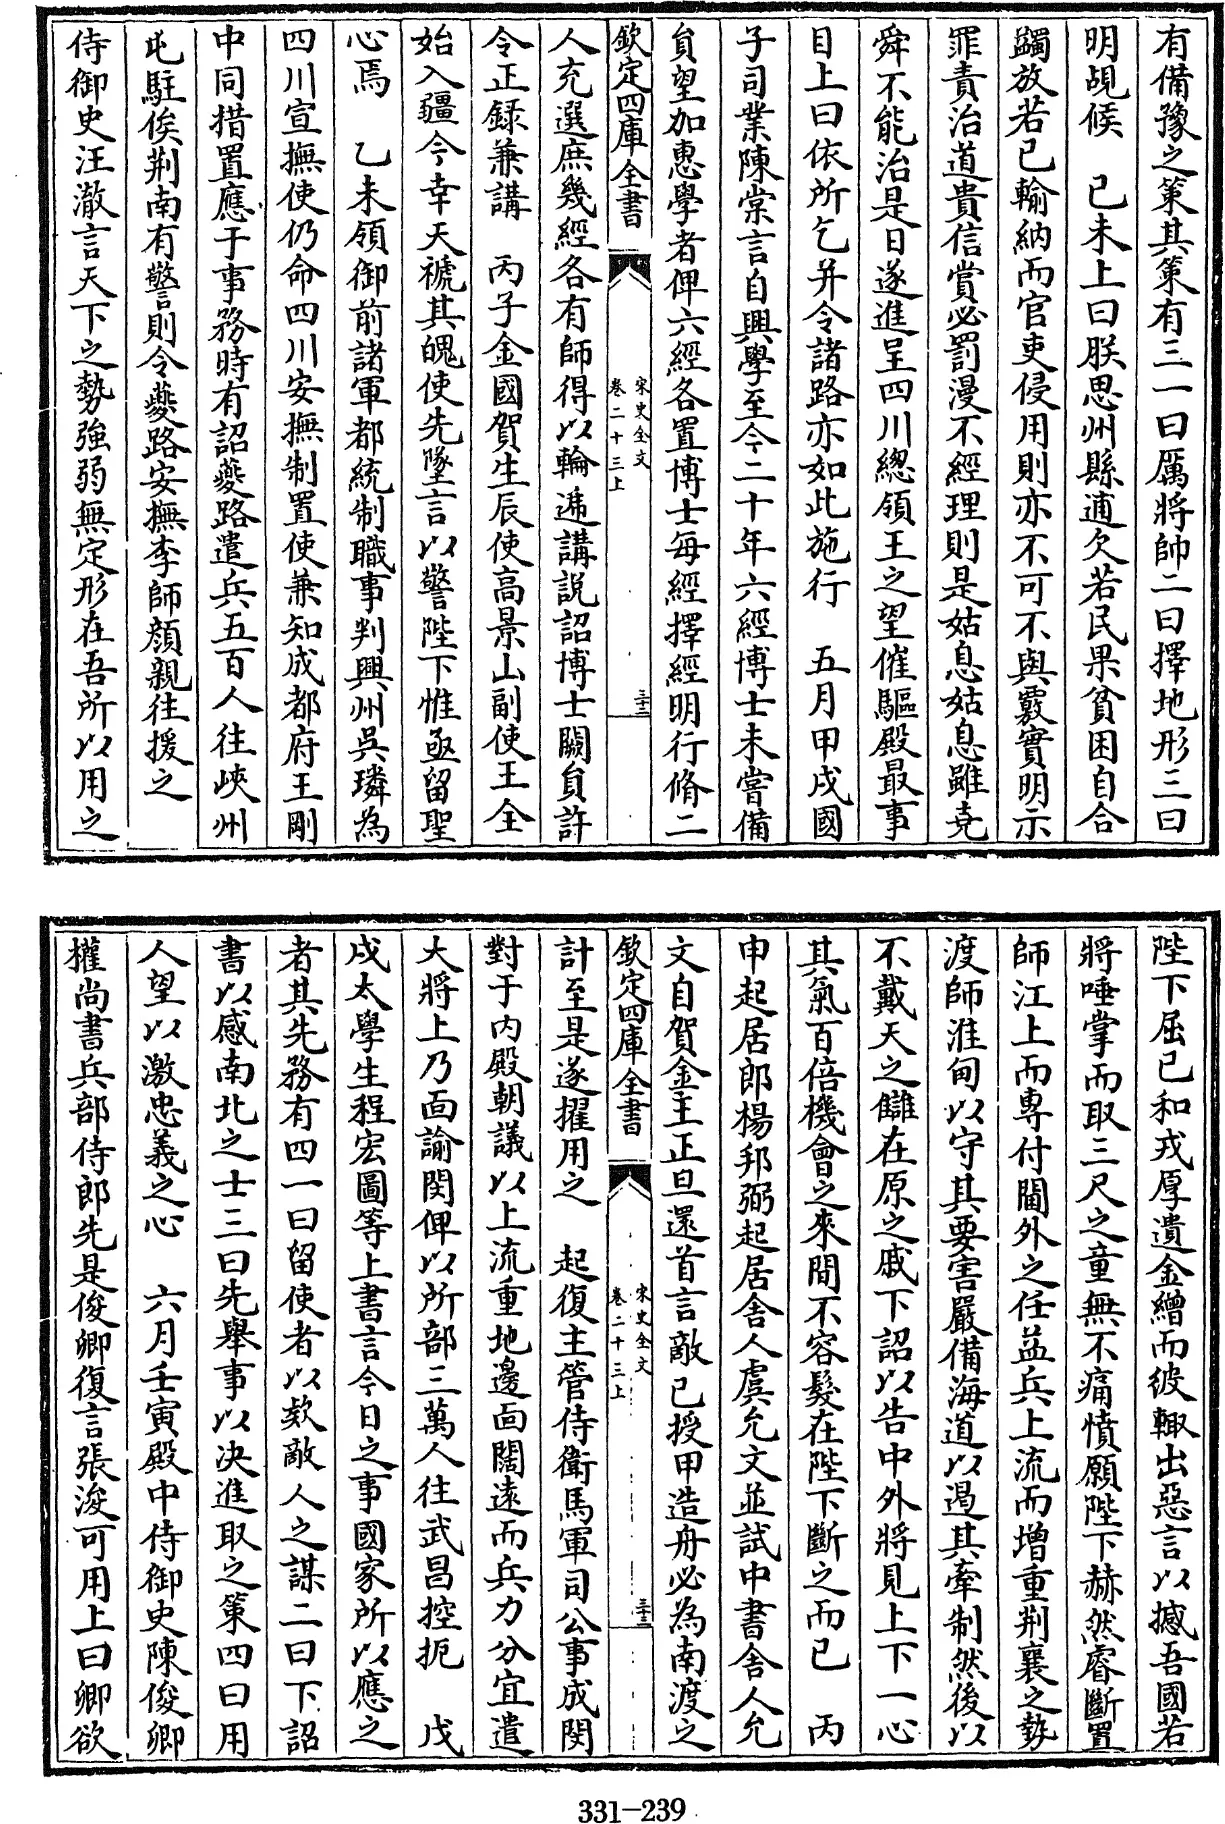 有備豫之策其策有三一曰厲將帥二曰擇地形三曰
明覘候　己未上曰朕思州縣逋欠若民果貧困自合
蠲放若已輸納而官吏侵用則亦不可不與覈實明示
罪責治道貴信賞必罰漫不經理則是姑息姑息雖堯
舜不能治是日遂進呈四川總領王之望催驅殿最事
目上曰依所乞并令諸路亦如此施行　五月甲戌國
子司業陳棠言自興學至今二十年六經博士未嘗備
員望加惠學者俾六經各置博士每經擇經明行脩二
欽定四庫全書
宋史全文
卷二十三上
三十二
人充選庶幾經各有師得以輪遞講說詔博士闕員許
令正録兼講　丙子金國賀生辰使高景山副使王全
始入疆今幸天褫其魄使先墜言以警陛下惟亟留聖
心焉　乙未領御前諸軍都統制職事判興州吳璘為
四川宣撫使仍命四川安撫制置使兼知成都府王剛
中同措置應于事務時有詔夔路遣兵五百人往峽州
屯駐俟荆南有警則令夔路安撫李師顔親往援之
侍御史汪澈言天下之勢強弱無定形在吾所以用之
陛下屈已和戎厚遺金繒而彼輙出惡言以撼吾國若
將唾掌而取三尺之童無不痛憤願陛下赫然睿斷置
師江上而專付閫外之任益兵上流而增重荆襄之勢
渡師淮甸以守其要害嚴備海道以遏其牽制然後以
不戴天之讎在原之戚下詔以告中外將見上下一心
其氣百倍機會之來間不容髮在陛下斷之而已　丙
申起居郎楊邦弼起居舍人虞允文並試中書舍人允
文自賀金主正旦還首言敵已授甲造舟必為南渡之
欽定四庫全書
宋史全文
卷二十三上
三十三
計至是遂擢用之　起復主管侍衛馬軍司公事成閔
對于内殿朝議以上流重地邊面闊遠而兵力分宜遣
大將上乃面諭閔俾以所部三萬人往武昌控扼　戊
戌太學生程宏圖等上書言今日之事國家所以應之
者其先務有四一曰留使者以欵敵人之謀二曰下詔
書以感南北之士三曰先舉事以决進取之策四曰用
人望以激忠義之心　六月壬寅殿中侍御史陳俊卿
權尚書兵部侍郎先是俊卿復言張浚可用上曰卿欲
331-239